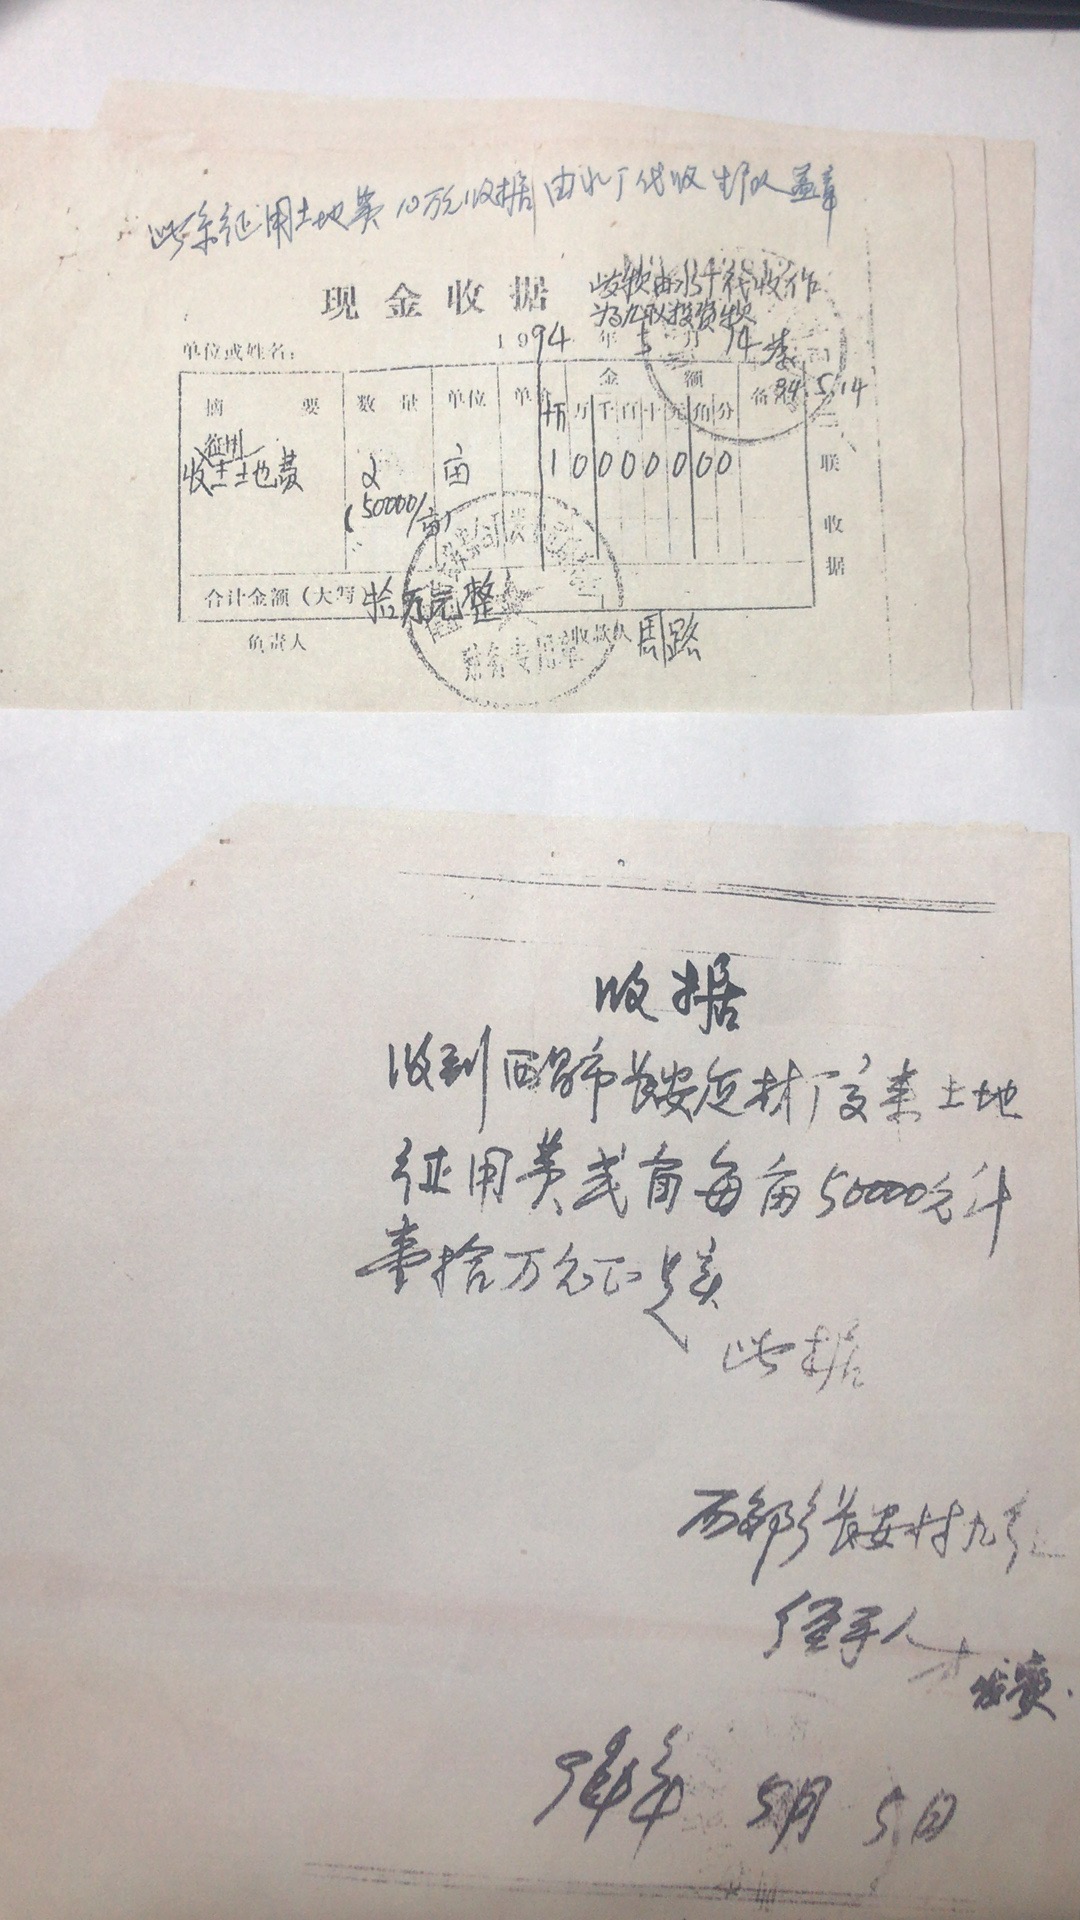 此系征用土地费10万元收据由水厂代收生产队盖章
现金收据
此款由水厂代收作
为九队投资款
单位或姓名：
1994年5月14
94.5.14
摘要 数量 单位 单价 金额 备
十万 万 千 百 十 元 角 分
征用
收土地费 2 亩 1 0 0 0 0 0 0 0
(50000/亩)
联
收
据
合计金额（大写）拾万元整
财务专用章
负责人 收款人 周路
收据
收到西昌市长安建材厂交来土地
征用费弍亩每亩50000元计
壹拾万元正
此据
西郊乡长安村九组
经手人
94年 5月 5日